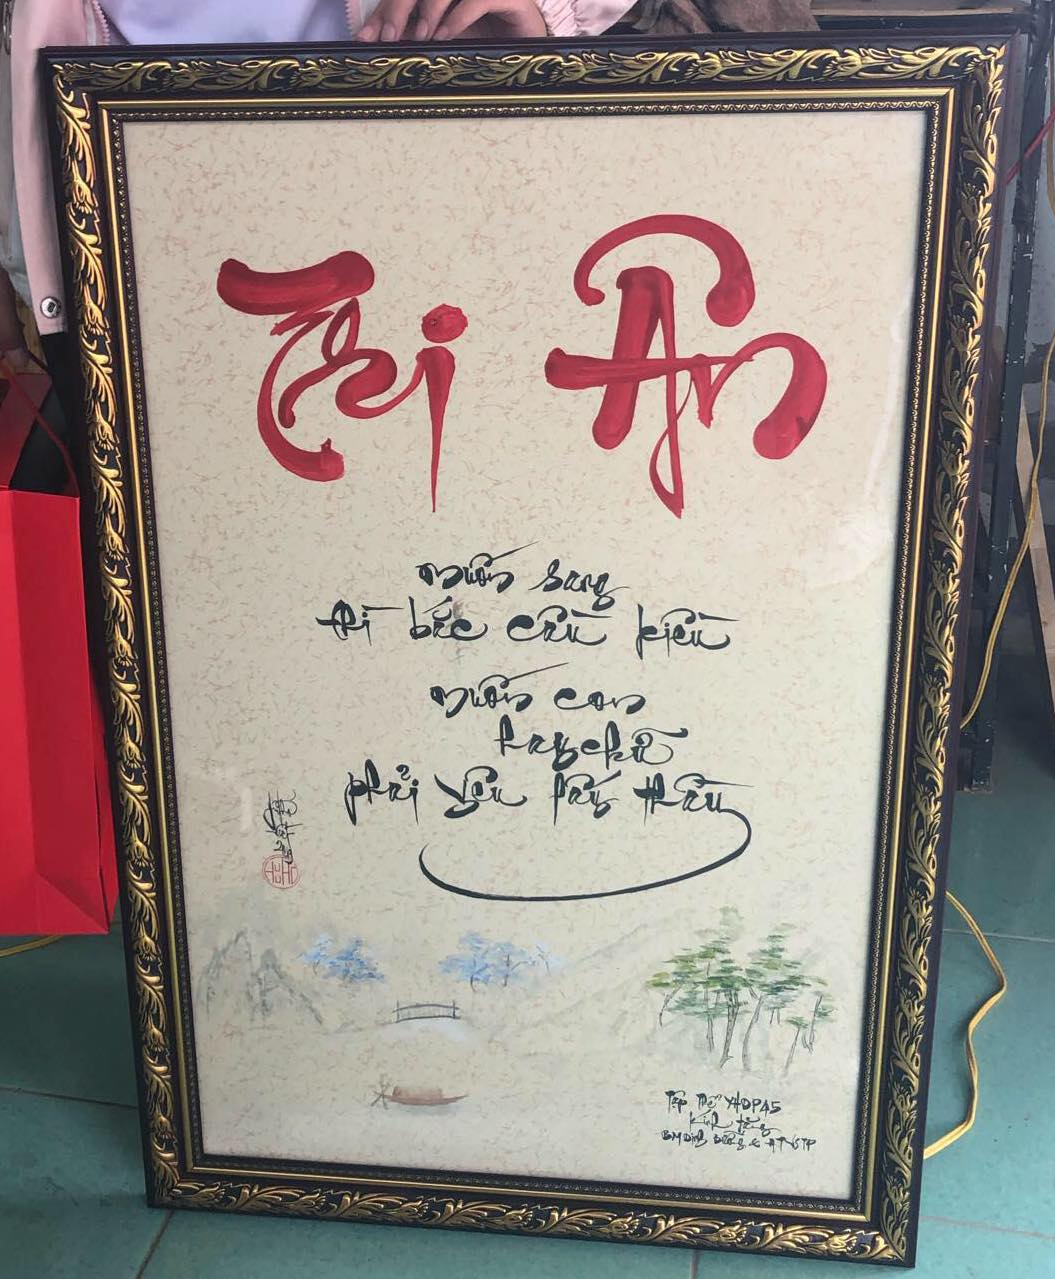 Tri Ân
muốn sang
thì bắc cầu kiều
muốn con
hay chữ
phải yêu lấy thầy
Tập thể YHDP A5
Kính tặng
BM Dinh Dưỡng & ATVSTP